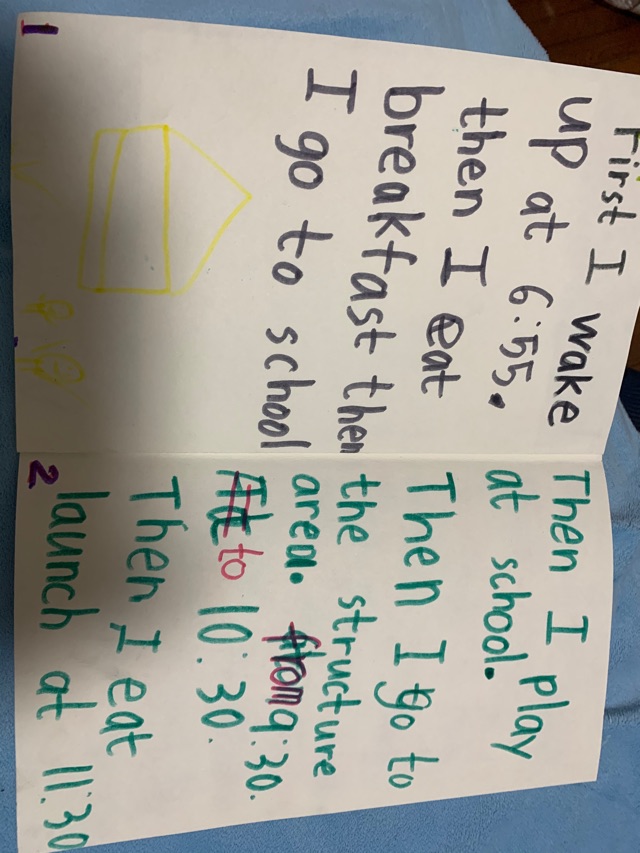 First I wake
up at 6:55.
then I eat
breakfast then
I go to school
1
Then I play
at school.
Then I go to
the structure
area. from 9:30.
to 10:30.
Then I eat
launch at 11:30
2